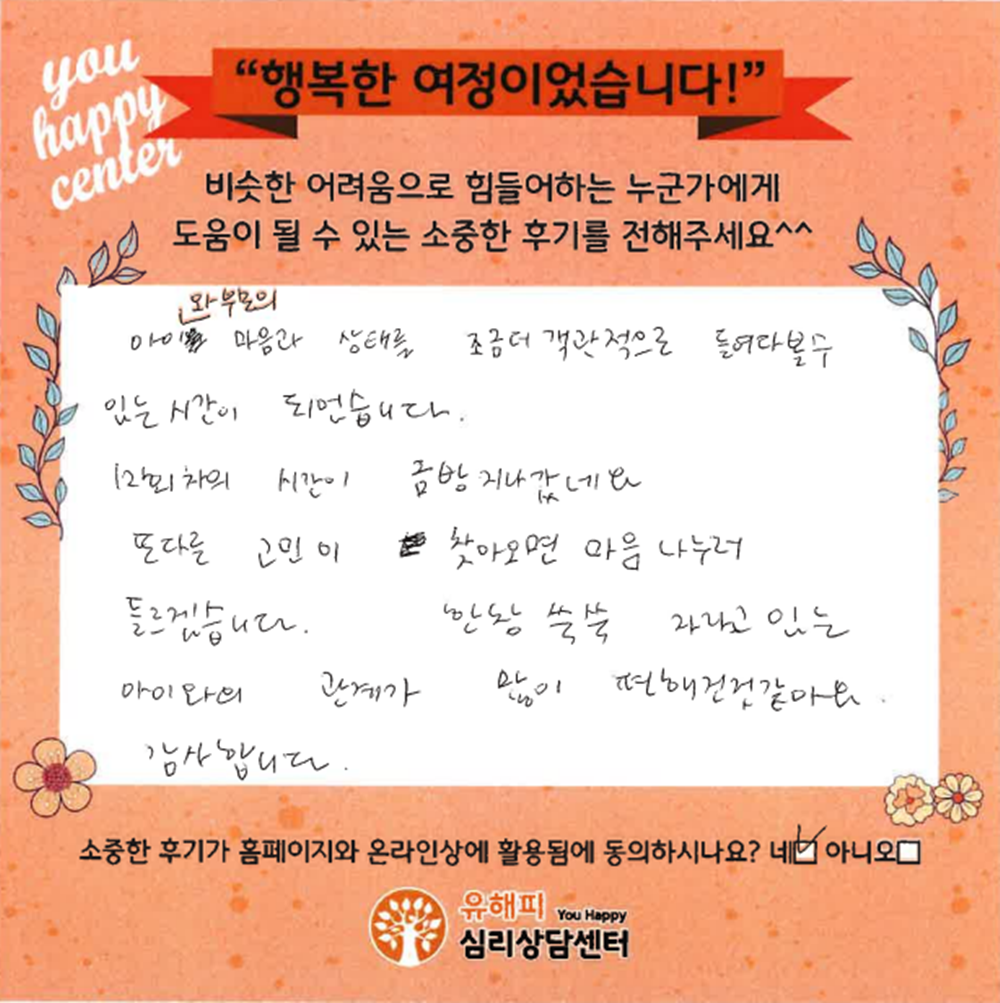 you
happy
center
“행복한 여정이었습니다!”
비슷한 어려움으로 힘들어하는 누군가에게
도움이 될 수 있는 소중한 후기를 전해주세요^^
와 부모의
아이 마음과 상태를 조금더 객관적으로 들여다볼수
있는 시간이 되었습니다.
12회차의 시간이 금방 지나갔네요
또다른 고민이 찾아오면 마음 나누러
들르겠습니다. 한창 쑥쑥 자라고 있는
아이와의 관계가 많이 편해진것같아요.
감사합니다.
소중한 후기가 홈페이지와 온라인상에 활용됨에 동의하시나요? 네 아니오
유해피 You Happy
심리상담센터